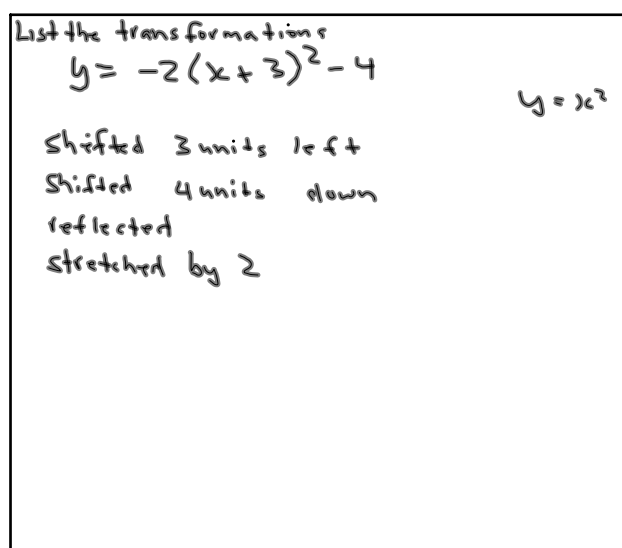 List the transformations
y = -2(x + 3)² - 4
y = x²
shifted 3 units left
Shifted 4 units down
reflected
stretched by 2